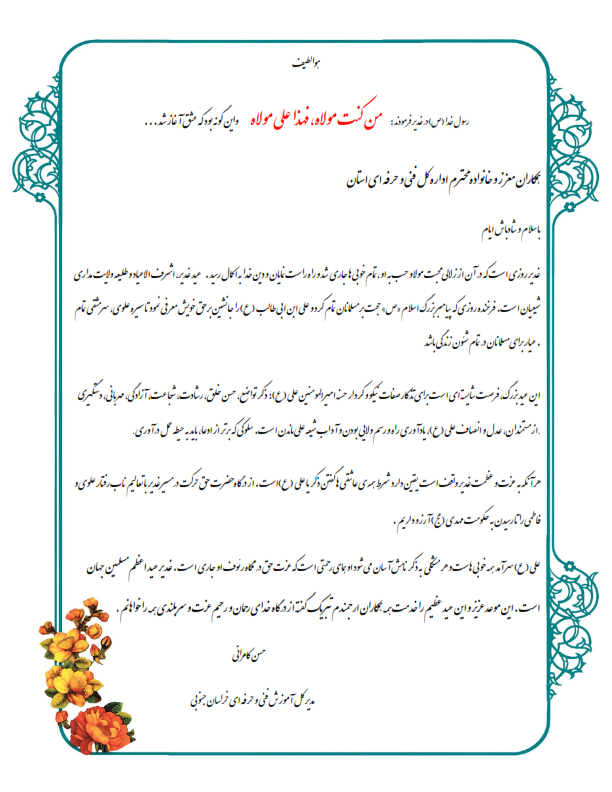 هوالطیف
رسول خدا (ص)در غدیر فرمودند: من کنت مولاه، فهذا علی مولاه واین گونه بود که عشق آغاز شد...
همکاران معزز و خانواده محترم اداره کل فنی و حرفه ای استان
باسلام و شادباش ایام
غدیر روزی است که در آن از زلالی محبت مولا و حب به او، تمام خوبی ها جاری شد و راه راست نمایان و دین خدا به اکمال رسید. عید غدیر، اشرف الاعیاد و طلیعه ولایت مداری
شیعیان است. فرخنده روزی که پیامبر بزرگ اسلام «ص» حجت بر مسلمانان تمام کرد و علی ابن ابی طالب (ع) را جانشین بر حق خویش معرفی نمود تا سیره علوی، سرمشقی تمام
عیار برای مسلمانان در تمام شئون زندگی باشد.
این عید بزرگ، فرصت شایسته ای است برای تذکار صفات نیکو و کردار حسنه امیرالمومنین علی (ع)؛ ذکر تواضع، حسن خلق، رشادت، شجاعت، آزادگی، مهربانی، دستگیری
از مستمندان، عدل و انصاف علی (ع)، یادآوری راه و رسم ولایی بودن و آداب شیعه علی ماندن است، سلوکی که برتر از ادعا، باید به حیطه عمل درآوری.
هرآنکه به عزت و عظمت غدیر واقف است یقین دارد شرط همه ی عاشقی ها گفتن ذکر یا علی (ع) است. از درگاه حضرت حق حرکت در مسیر غدیر با تعالیم ناب رفتار علوی و
فاطمی را تا رسیدن به حکومت مهدی (عج) آرزو داریم.
علی (ع) سرآمد همه خوبی هاست و هر مشکلی به ذکر نامش آسان می شود او جای رحمتی است که عزت حق در نگاه رئوف او جاری است. غدیر عید اعظم مسلمین جهان
است. این موعد عزیز و این عید عظیم را خدمت همه همکاران ارجمندم تبریک گفته از درگاه خدای رحمان و رحیم عزت و سربلندی همه را خواهانم.
حسن کامرانی
مدیر کل آموزش فنی و حرفه ای خراسان جنوبی